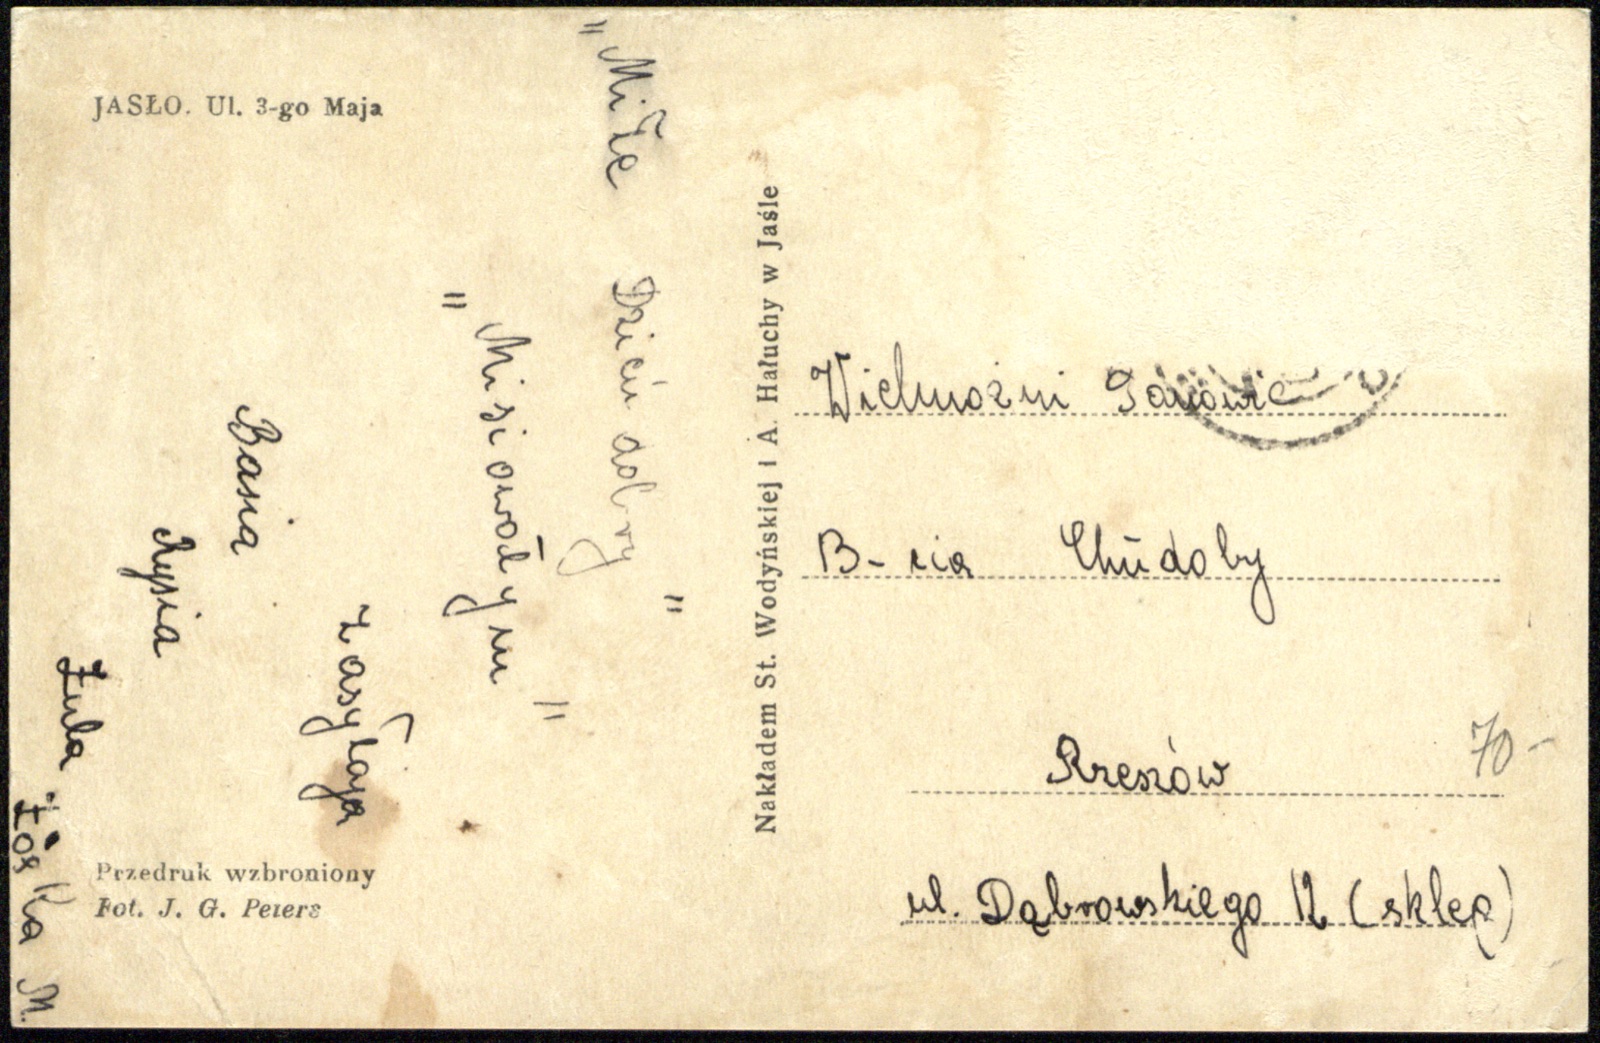 JASŁO. Ul. 3-go Maja
"Miłe
Dzień dobry"
"Misiowatym"
zasyłają
Basia
Rysia
Zula
Zośka M.
Przedruk wzbroniony
Fot. J. G. Peters
Nakładem St. Wodyńskiej i A. Hałuchy w Jaśle
Wielmożni Panowie
B-cia Chudoby
Rzeszów
ul. Dąbrowskiego 12 (sklep)
70-